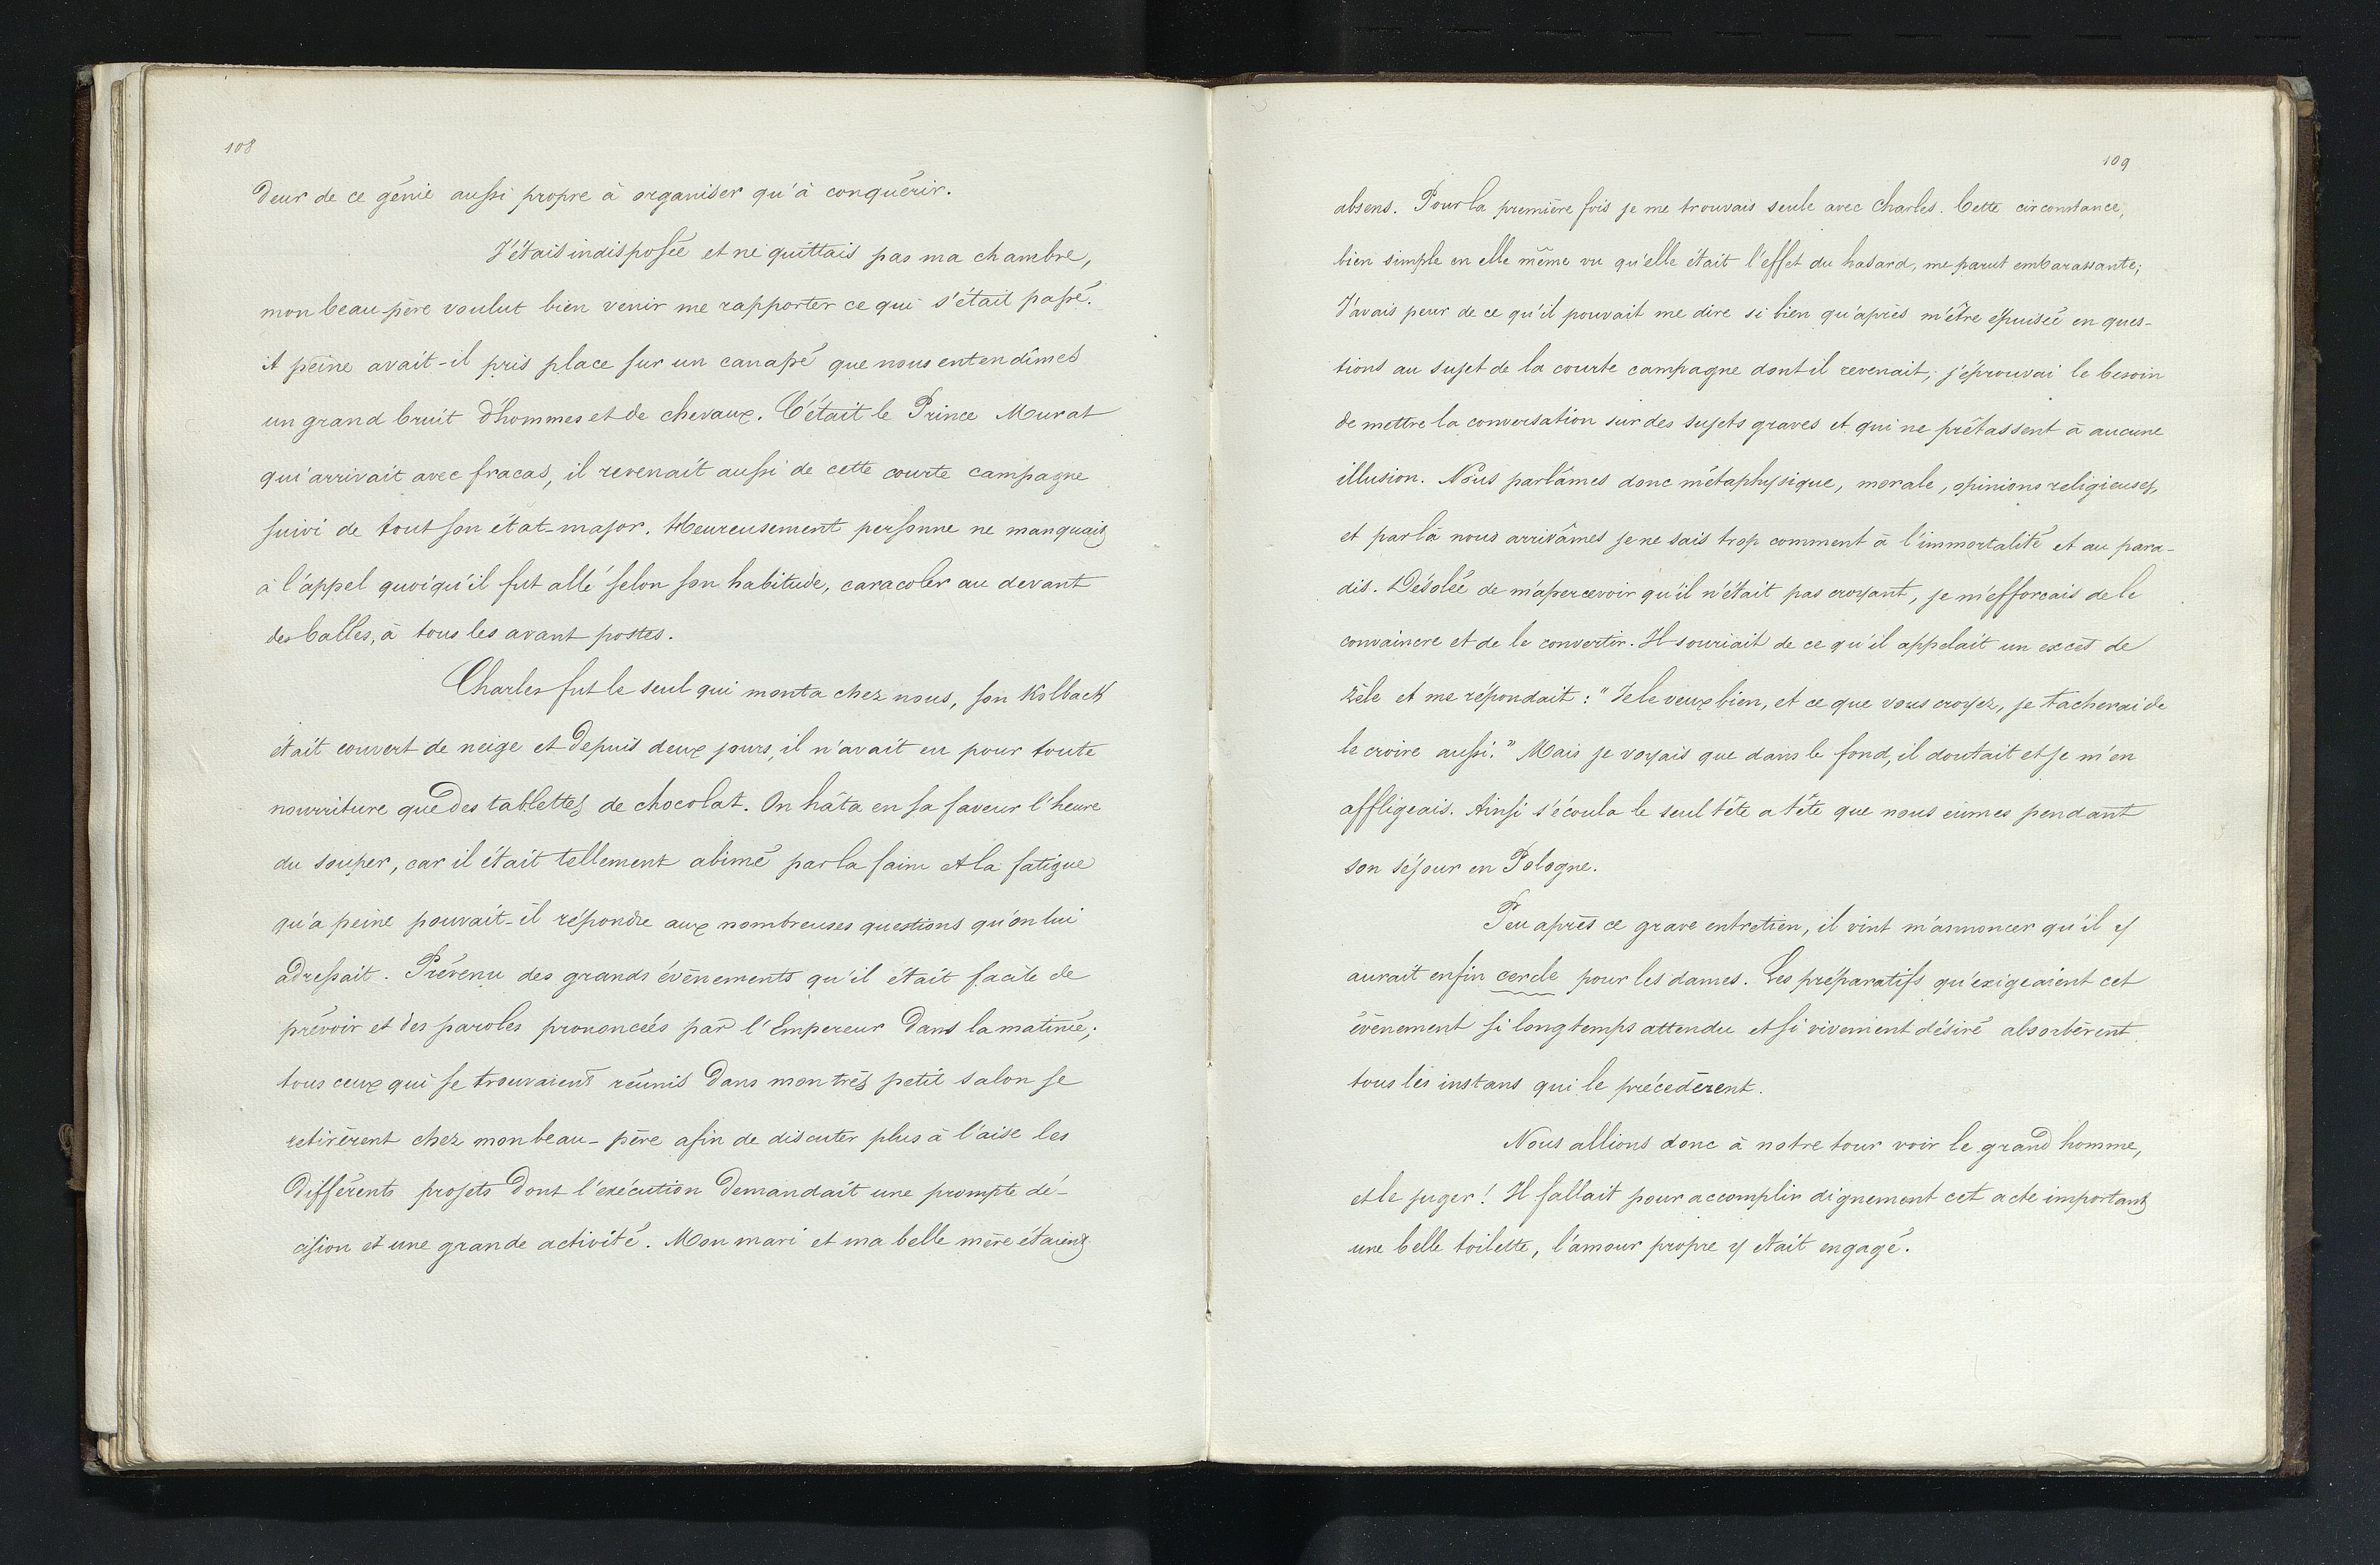 108
deur de ce génie aussi propre à organiser qu'à conquérir.
J'étais indisposée et ne quittais pas ma chambre,
mon beau-père voulut bien venir me rapporter ce qui s'était passé.
A peine avait-il pris place sur un canapé que nous entendîmes
un grand bruit d'hommes et de chevaux. C'était le Prince Murat
qui arrivait avec fracas, il revenait aussi de cette courte campagne
suivi de tout son état-major. Heureusement personne ne manquait
à l'appel quoiqu'il fut allé selon son habitude, caracoler au devant
des balles, à tous les avant postes.
Charles fut le seul qui monta chez nous, son Kolback
était couvert de neige et depuis deux jours, il n'avait eu pour toute
nourriture que des tablettes de chocolat. On hâta en sa faveur l'heure
du souper, car il était tellement abimé par la faim et la fatigue
qu'a peine pouvait-il répondre aux nombreuses questions qu'on lui
adressait. Prévenu des grands évènements qu'il était facile de
prévoir et des paroles prononcées par l'Empereur dans la matinée;
tous ceux qui se trouvaient réunis dans mon très petit salon se
retirèrent chez mon beau-père afin de discuter plus à l'aise les
différents projets dont l'exécution demandait une prompte dé-
cision et une grande activité. Mon mari et ma belle mère étaient
109
absens. Pour la première fois je me trouvais seule avec Charles. Cette circonstance,
bien simple en elle même vu qu'elle était l'effet du hasard, me parut embarassante;
J'avais peur de ce qu'il pouvait me dire si bien qu'après m'être épuisée en ques-
tions au sujet de la courte campagne dont il revenait; j'éprouvai le besoin
de mettre la conversation sur des sujets graves et qui ne prêtassent à aucune
illusion. Nous parlâmes donc métaphysique, morale, opinions religieuses,
et par là nous arrivâmes je ne sais trop comment à l'immortalité et au para-
dis. Désolée de m'apercevoir qu'il n'était pas croyant, je m'efforcais de le
convaincre et de le convertir. Il souriait de ce qu'il appelait un excès de
zèle et me répondait : "Je le veux bien, et ce que vous croyez, je tacherai de
le croire aussi." Mais je voyais que dans le fond, il doutait et je m'en
affligeais. Ainsi s'écoula le seul tête a tête que nous eûmes pendant
son séjour en Pologne.
Peu après ce grave entretien, il vint m'annoncer qu'il y
aurait enfin cercle pour les dames. Les préparatifs qu'exigeaient cet
évènement si longtemps attendu et si vivement désiré absorbèrent
tous les instans qui le précedèrent.
Nous allions donc à notre tour voir le grand homme,
et le juger! Il fallait pour accomplir dignement cet acte important
une belle toilette, l'amour propre y était engagé.